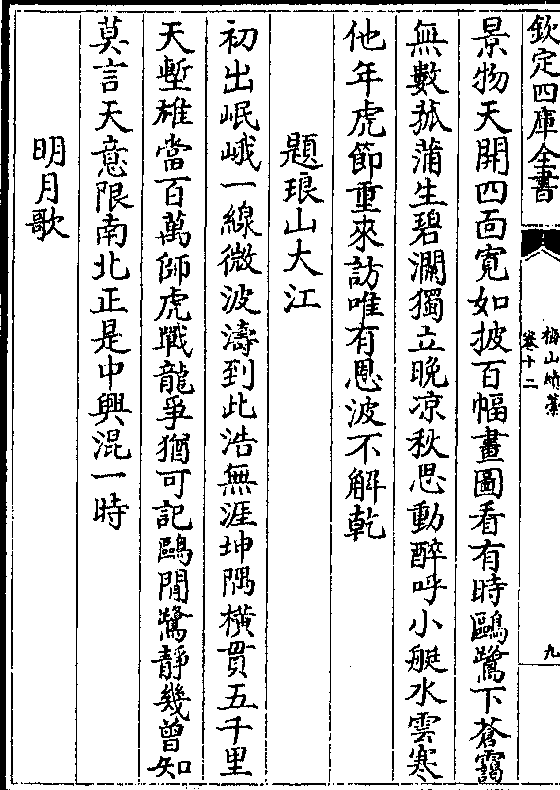 欽定四庫全書
梅山續藁
卷十二
九
景物天開四面寛如披百幅畫圖看有時鷗鷺下蒼靄
無數菰蒲生碧瀾獨立晚凉秋思動醉呼小艇水雲寒
他年虎節重來訪唯有恩波不解乾
題琅山大江
初出岷峨一線微波濤到此浩無涯坤隅橫貫五千里
天塹雄當百萬師虎戰龍爭猶可記鷗閒鷺靜幾曾知
莫言天意限南北正是中興混一時
明月歌